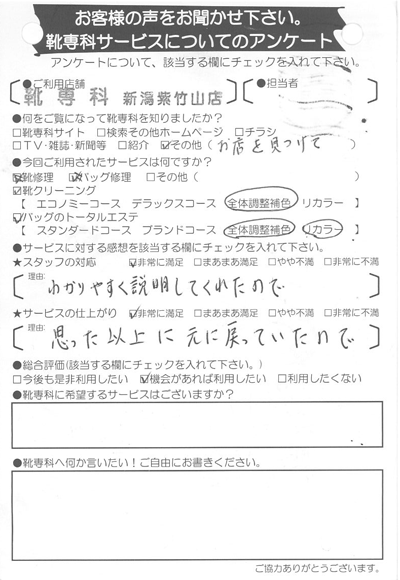 お客様の声をお聞かせ下さい。
靴専科サービスについてのアンケート
アンケートについて、該当する欄にチェックを入れて下さい。
●ご利用店舗 ●担当者
靴専科 新潟紫竹山店
●何をご覧になって靴専科を知りましたか?
□靴専科サイト □検索その他ホームページ □チラシ
□TV・雑誌・新聞等 □紹介 ☑その他(お店を見つけて)
●今回ご利用されたサービスは何ですか?
☑靴修理 ☑バッグ修理 □その他( )
☑靴クリーニング
【 エコノミーコース デラックスコース 全体調整補色 リカラー 】
☑バッグのトータルエステ
【 スタンダードコース ブランドコース 全体調整補色 リカラー 】
●サービスに対する感想を該当する欄にチェックを入れて下さい。
★スタッフの対応 ☑非常に満足 □まあまあ満足 □やや不満 □非常に不満
理由: わかりやすく説明してくれたので
★サービスの仕上がり ☑非常に満足 □まあまあ満足 □やや不満 □非常に不満
理由: 思った以上に元に戻っていたので
●総合評価(該当する欄にチェックを入れて下さい。)
□今後も是非利用したい ☑機会があれば利用したい □利用したくない
●靴専科に希望するサービスはございますか?
●靴専科へ何か言いたい!ご自由にお書きください。
ご協力ありがとうございます。